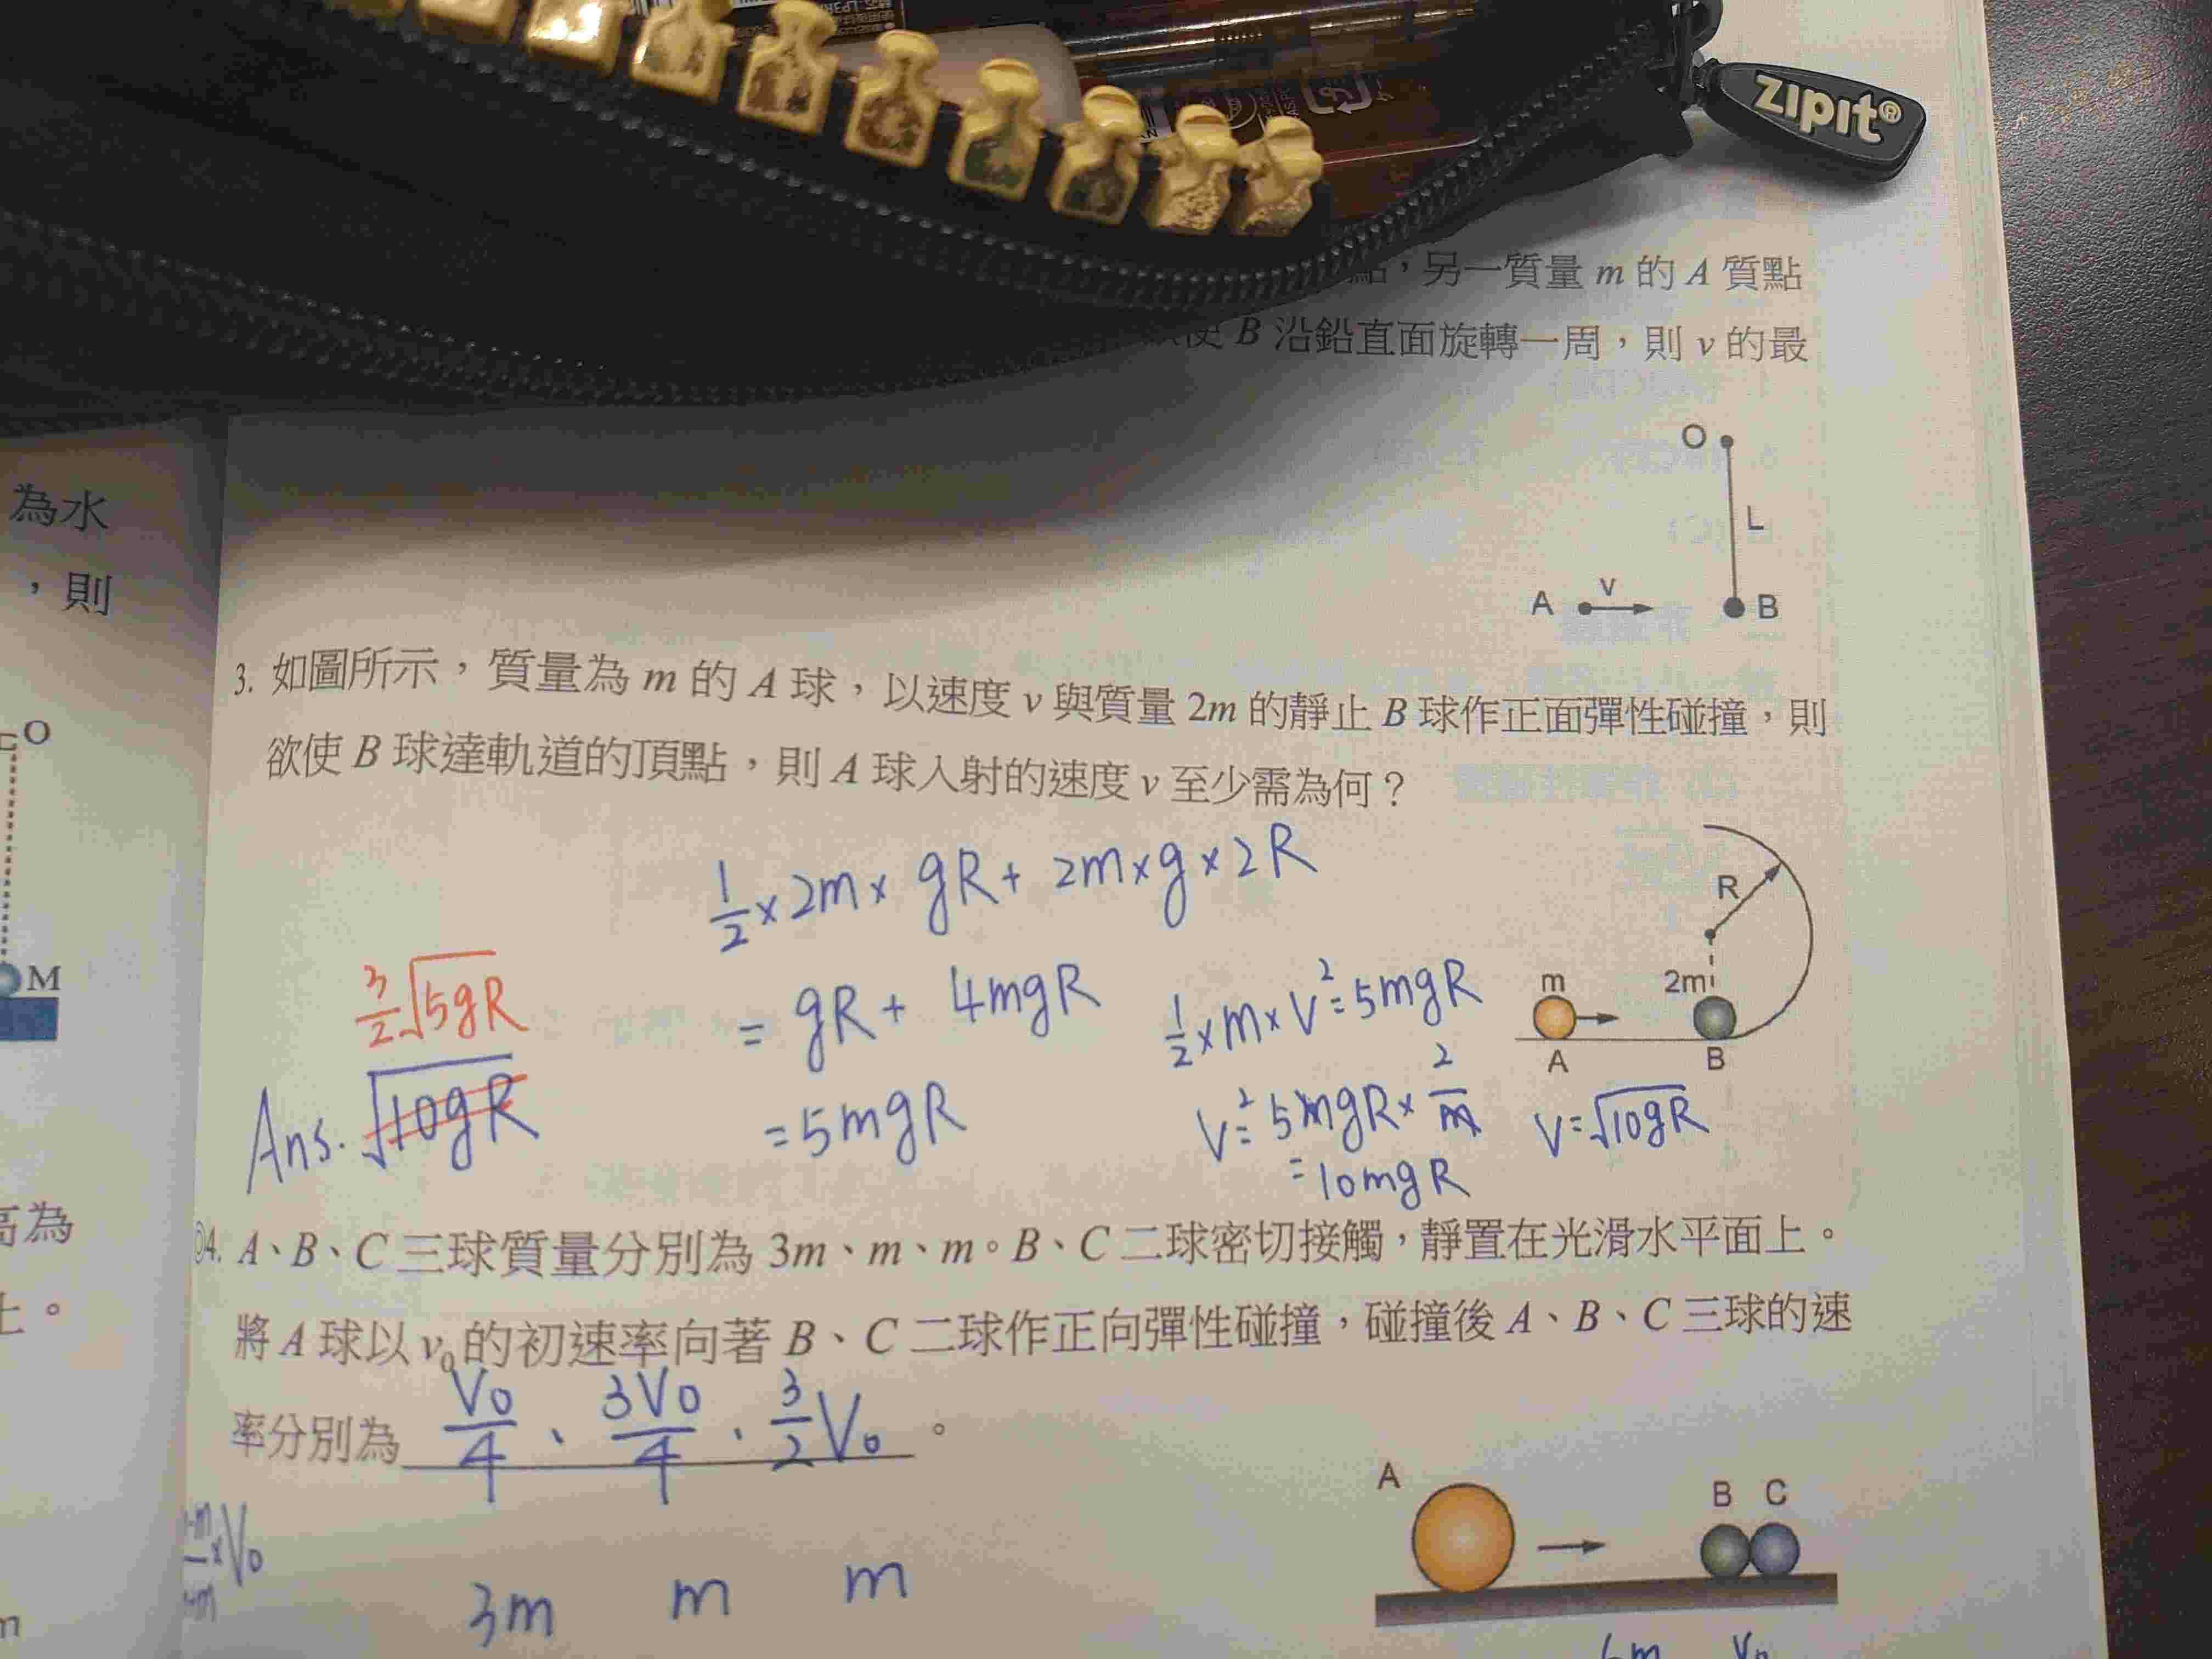 zipit®
另一質量 m 的 A 質點
使 B 沿鉛直面旋轉一周，則 v 的最
O
L
A v B
為水
，則
O
M
3. 如圖所示，質量為 m 的 A 球，以速度 v 與質量 2m 的靜止 B 球作正面彈性碰撞，則
欲使 B 球達軌道的頂點，則 A 球入射的速度 v 至少需為何？
1/2 × 2m × gR + 2m×g×2R
= gR + 4mgR
= 5mgR
1/2 ×m× V²=5mgR
V²=5mgR× 2/m
=10mgR
V=√10gR
3/2 √5gR
Ans. √10gR
R
m 2m
A B
高為
上。
4. A、B、C 三球質量分別為 3m、m、m。B、C 二球密切接觸，靜置在光滑水平面上。
將 A 球以 v₀ 的初速率向著 B、C 二球作正向彈性碰撞，碰撞後 A、B、C 三球的速
率分別為 V₀/4、3V₀/4、3/2 V₀。
3m m m
A B C